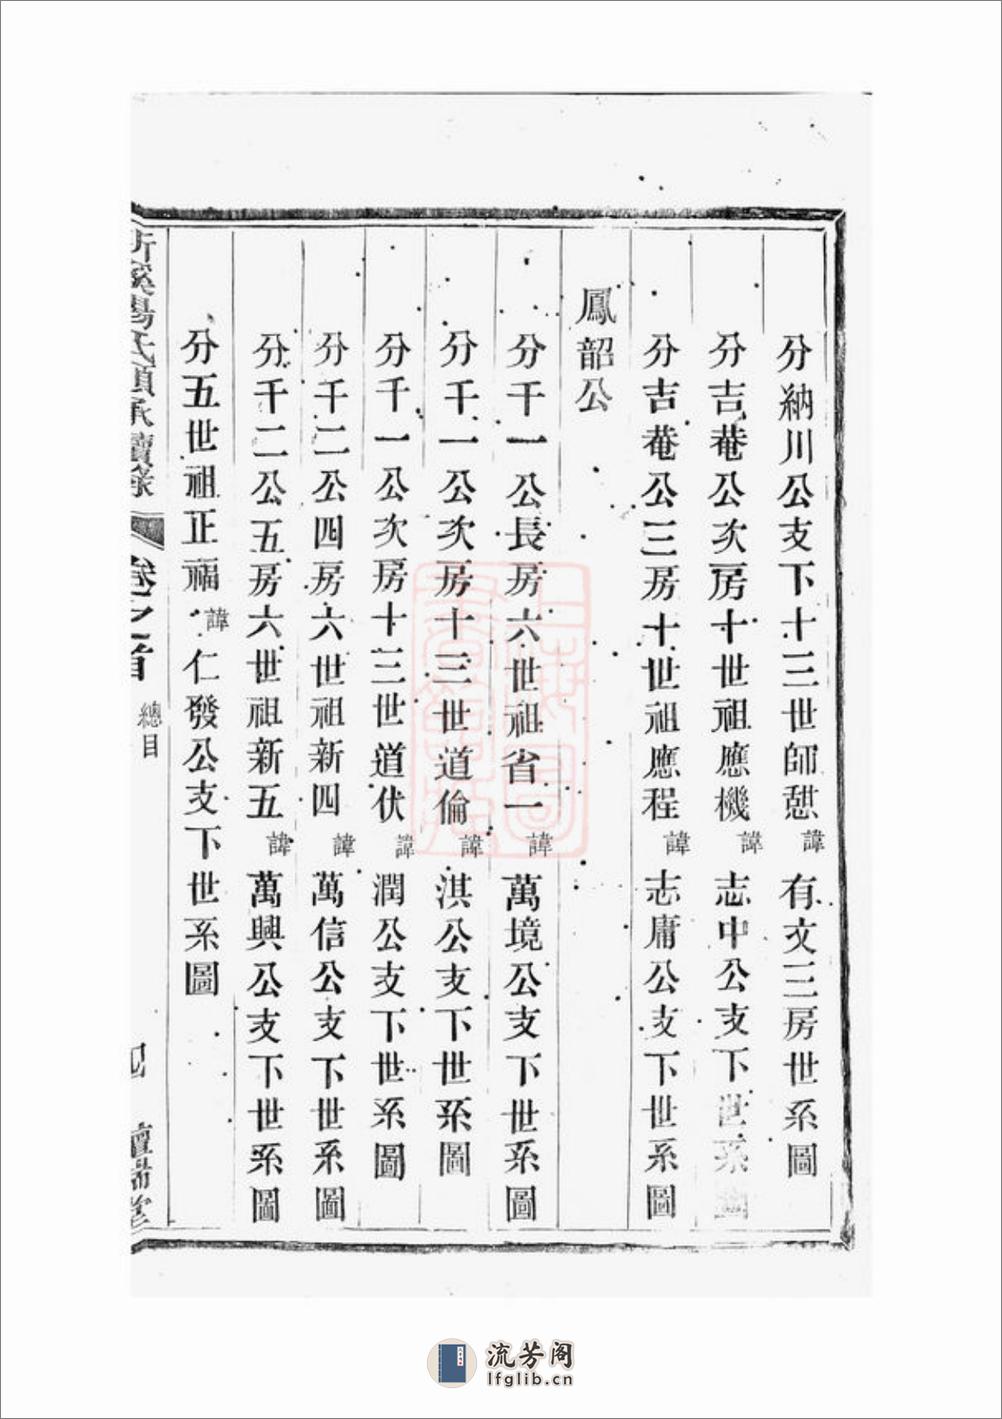 分納川公支下十三世師憇諱有文三房世系圖
分吉菴公次房十世祖應機諱志中公支下世系圖
分吉菴公三房十世祖應程諱志庸公支下世系圖
鳳韶公
分千一公長房六世祖省一諱萬境公支下世系圖
分千一公次房十三世道倫諱淇公支下世系圖
分千一公次房十三世道伏諱潤公支下世系圖
分千二公四房六世祖新四諱萬信公支下世系圖
分千二公五房六世祖新五諱萬興公支下世系圖
分五世祖正福諱仁發公支下世系圖
卷之首 總目
流芳阁
lfglib.cn